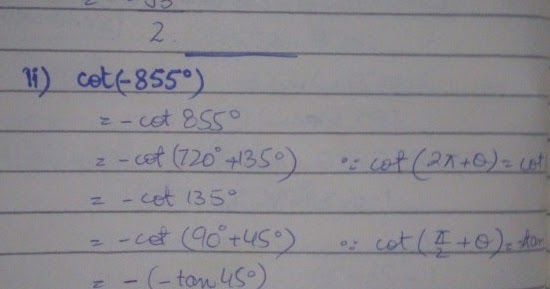 2
ii) cot(-855°)
= -cot 855°
= -cot (720° + 135°) ∵ cot (2π + θ) = cot
= -cot 135°
= -cot (90° + 45°) ∵ cot (π/2 + θ) = -tan
= - (-tan 45°)